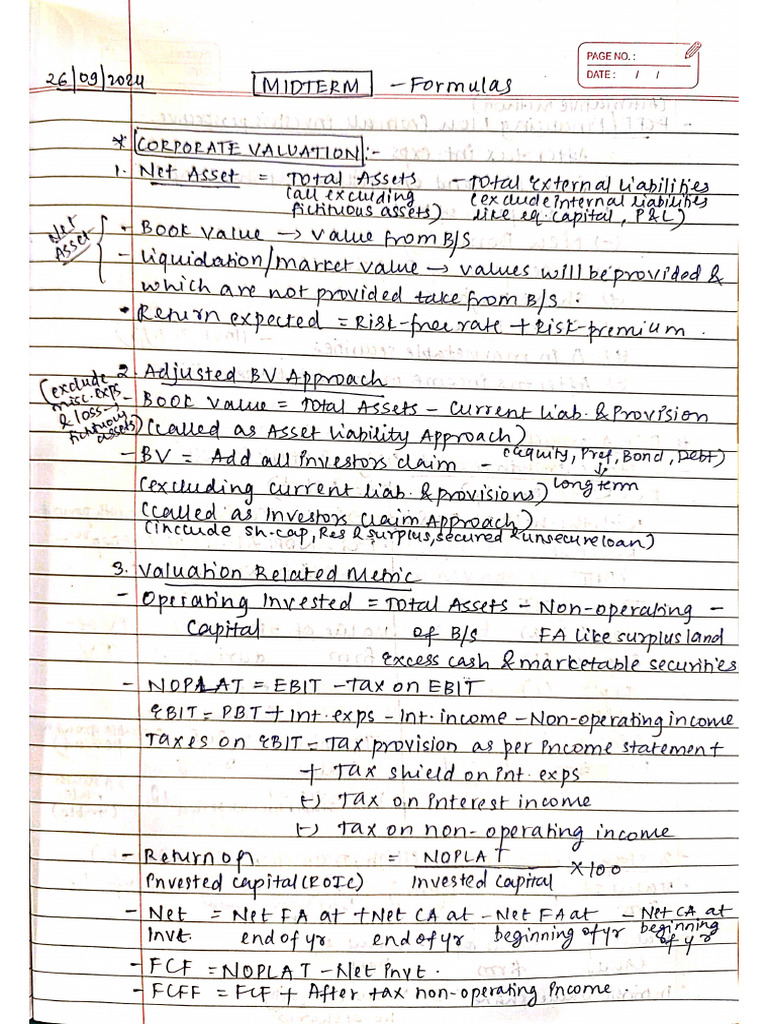 PAGE NO.:
DATE: / /
26/09/2024 MIDTERM - Formulas
* CORPORATE VALUATION :-
1. Net Asset = Total Assets - Total External liabilities
(all excluding (exclude internal liabilities
fictituous assets) like eq. capital, P&L)
Net Asset
- Book value → value from B/S
- liquidation/market value → values will be provided &
which are not provided take from B/S.
• Return expected = Risk-free rate + Risk-premium.
2. Adjusted BV Approach
(exclude misc. exps & loss- fictituous assets)
- Book value = Total Assets - Current liab. & Provision
(called as Asset liability Approach)
- BV = Add all investors claim - (equity, Pref, Bond, Debt)
↓
(excluding current liab. & provisions) long term
(called as Investors claim Approach)
(include sh-cap, Res & surplus, secured & unsecure loan)
3. Valuation Related Metric
- Operating Invested = Total Assets - Non-operating -
Capital of B/S FA like surplus land
excess cash & marketable securities
- NOPLAT = EBIT - Tax on EBIT
EBIT = PBT + Int. exps - Int. income - Non-operating income
Taxes on EBIT = Tax provision as per Income statement
+ Tax shield on int. exps
(-) Tax on interest income
(-) Tax on non-operating income
- Return on = NOPLAT X 100
Invested capital (ROIC) invested capital
- Net = Net FA at + Net CA at - Net FA at - Net CA at
Invt. end of yr end of yr beginning of yr beginning of yr
- FCF = NOPLAT - Net Invt.
- FCFF = FCF + After tax non-operating Income.